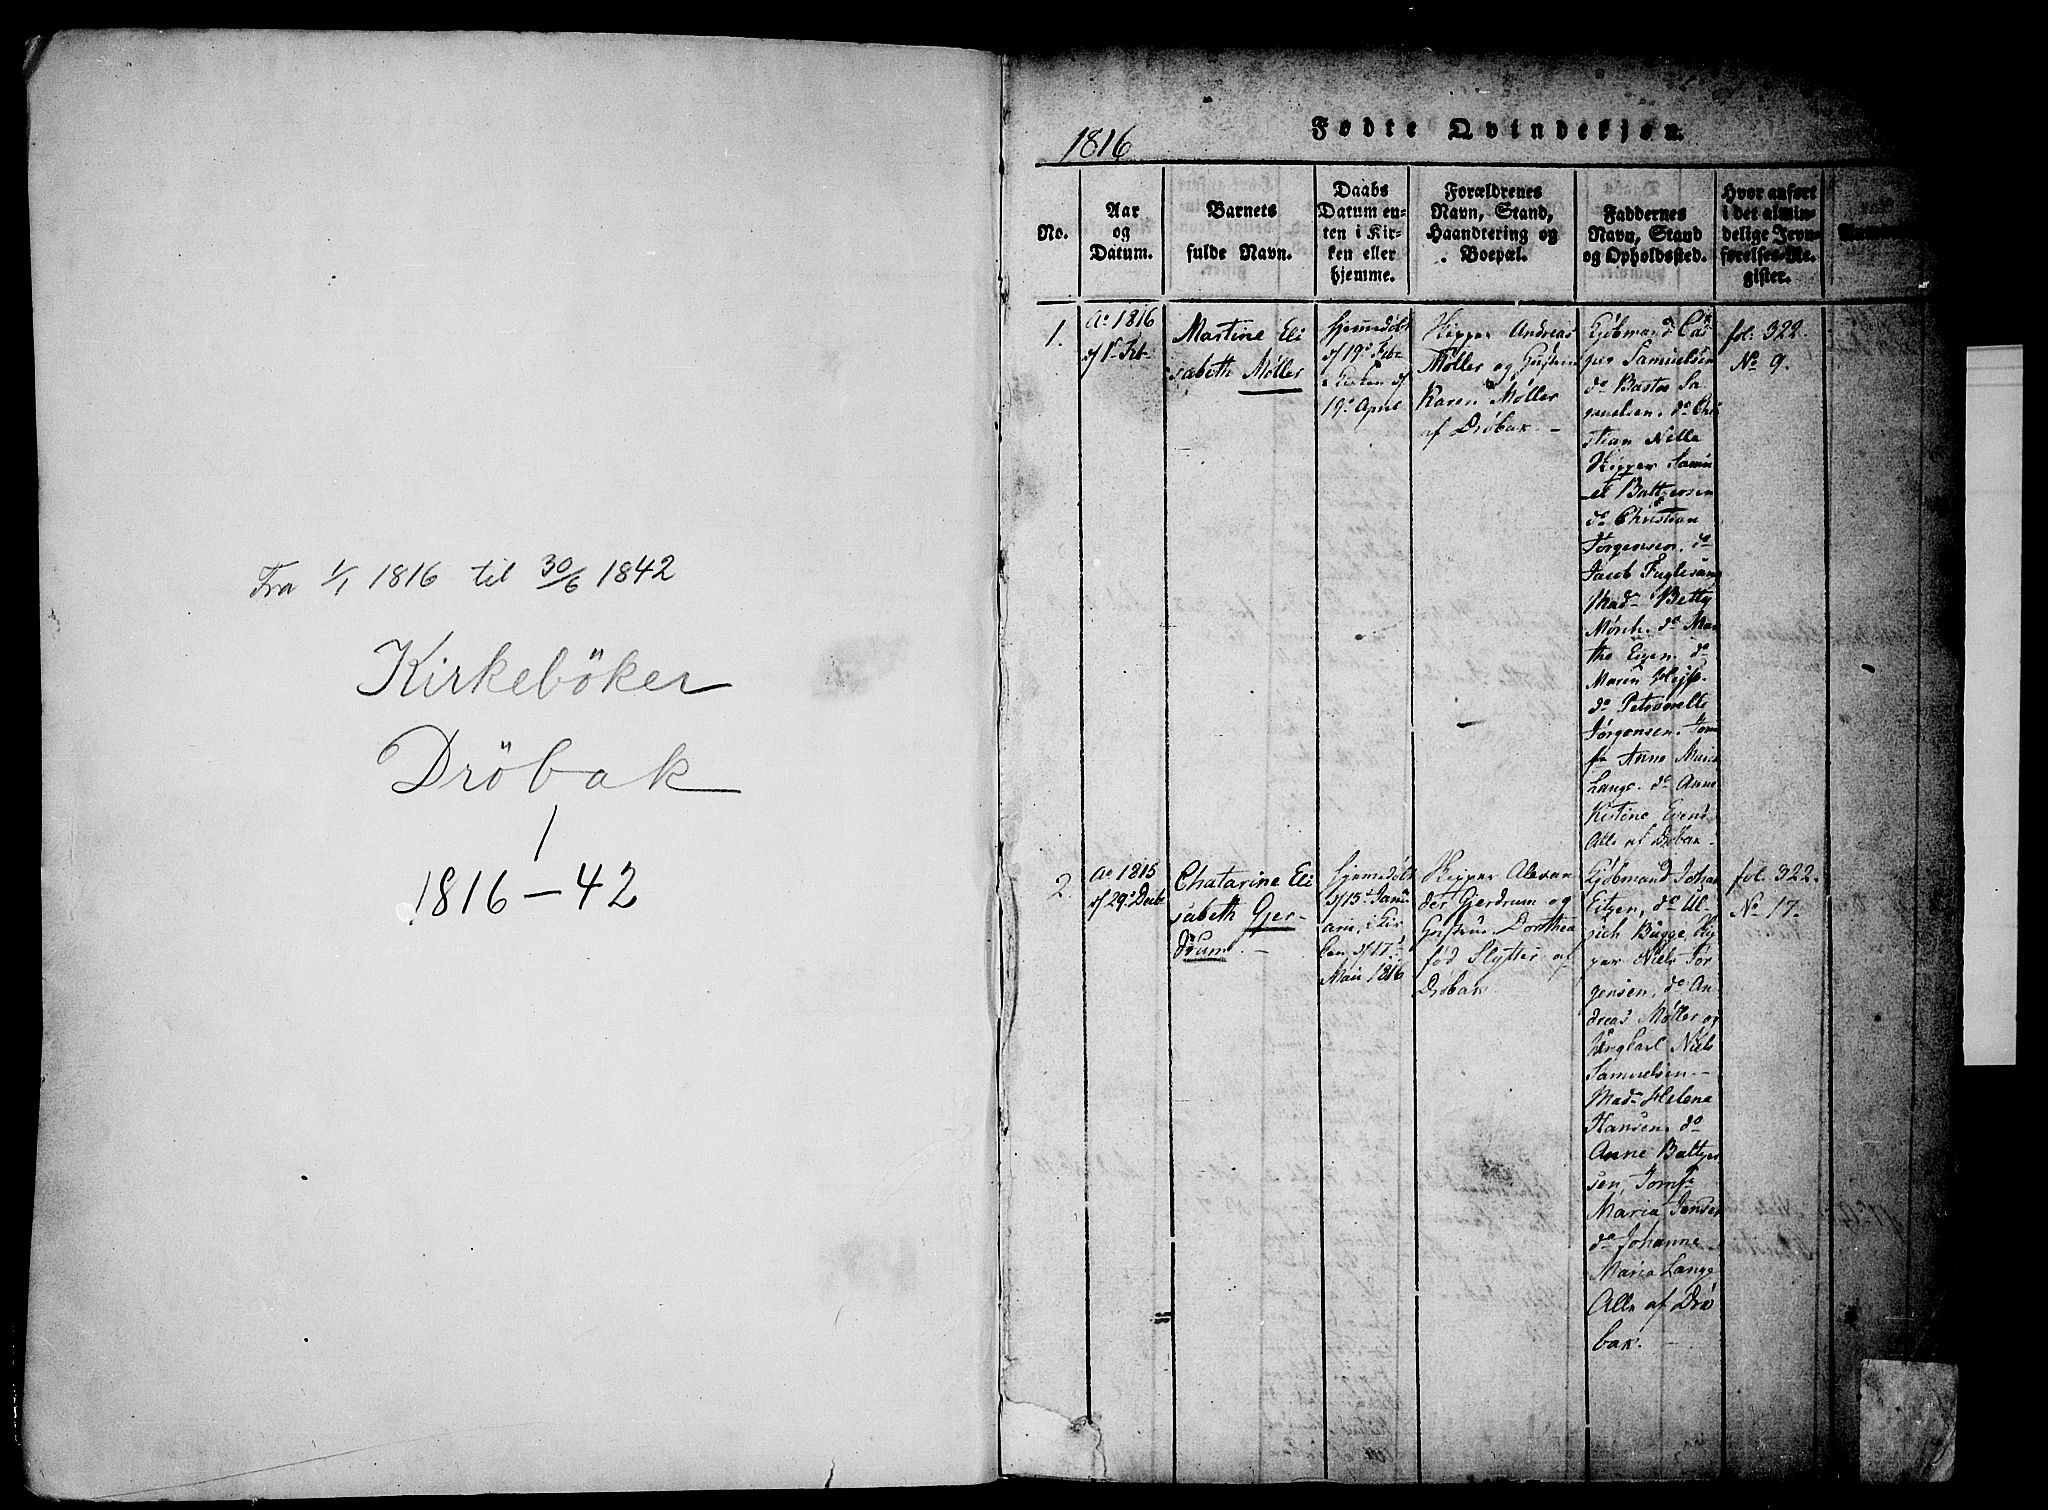 Fra 1/1 1816 til 30/6 1842
Kirkeböker
Dröbak
1
1816-42
1816
Fødte Qvindekjøn.
No.
Aar
og
Datum.
Barnets
fulde Navn.
Daabs
Datum en-
ten i Kir-
ken eller
hjemme.
Forældrenes
Navn, Stand,
Haandtering og
Boepæl.
Faddernes
Navn, Stand
og Opholdssted.
Hvor anført
i det almin-
delige Jevn-
førelses-Re-
gister.
1.
Ao 1816
Martine Eli
sabeth Møller
Hjemedøbt
d/ 19de Febr
i Kirken d/
19de April
Skipper Andreas
Møller og Hustrue
Karen Møller
af Drøbak. -
Kjøbmand Cas
per Samuelsen
do Bastee Sa
muelsen. do Chri
stian Nille
Skipper Samu
el Battersen
do Christian
Jørgensen. do
Jacob Fuglesang
Madm Betty
Mørch. do Mar
the Eigen. do
Maren
do Petronelle
Jørgensen. Jom
fr Anne Marie
Lange. do Anne
Kistine Evens
Alle af Drøbak -
fol. 322.
No 9.
2.
Ao 1815
d/ 29de Decb
Chatarine Eli
sabeth Gjer-
drum. -
Hjemedøbt
d/ 15de Janu
arii, i Kir
ken, d/ 17de
Maii 1816
Skipper Alexan
der Gjerdrum og
Hustrue Dorothea
fød Slytter af
Drøbak
Kjøbmand Johan
Eitzen, do Ul-
rich Bugge, Skip
per Niels Jør
gensen, do An
dreas Møller og
Ungkarl Niels
Samuelsen -
Madm Helena
Hansen. do
Anne Battyer
sen, Jomfr
Maria Jensen
do Johanne
Maria Lange
Alle af Drø
bak. -
fol. 322.
No 17.